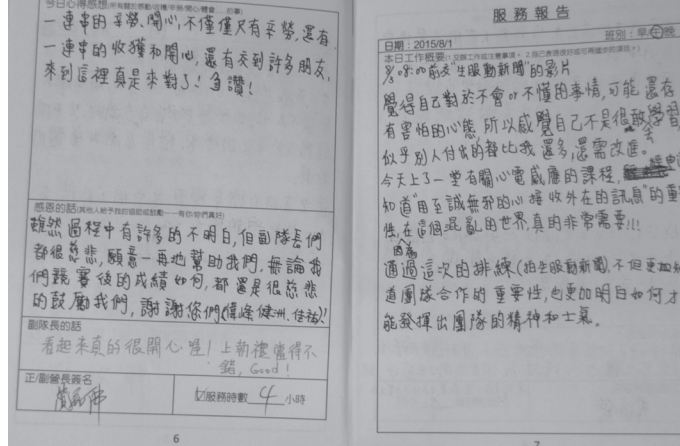 今日心得感想
一連串的辛勞、開心,不僅僅只有辛勞,還有
一連串的收獲和開心,還有交到許多朋友,
來到這裡真是來對了!
讚!
感恩的話(其他人給予我的協助或鼓勵——有你/妳們真好)
雖然過程中有許多的不明白,但副隊長們
都很慈悲,願意一再地幫助我們,無論我
們競賽後的成績如何,都還是很慈悲
的鼓勵我們,謝謝您們
副隊長的話
看起來真的很開心喔!上新禮覺得不
錯,Good!
正/副營長簽名
服務時數 4 小時
6
服務報告
日期:2015/8/1
班別:早 晚
本日工作概要
8:00前交"生服動新聞"的影片
覺得自己對於不會or不懂的事情,可能還存
有害怕的心態,所以感覺自己不是很敢學習,
似乎別人付出的都比我還多,還需改進。
今天上了一堂有關心電感應的課程,
知道"用至誠無邪的心接收外在的訊息"的重
性,在這個混亂的世界,真的非常需要!!!
因為
通過這次的排練(拍生服動新聞),不但更加知
道團隊合作的重要性,也更加明白如何才
能發揮出團隊的精神和士氣。
7